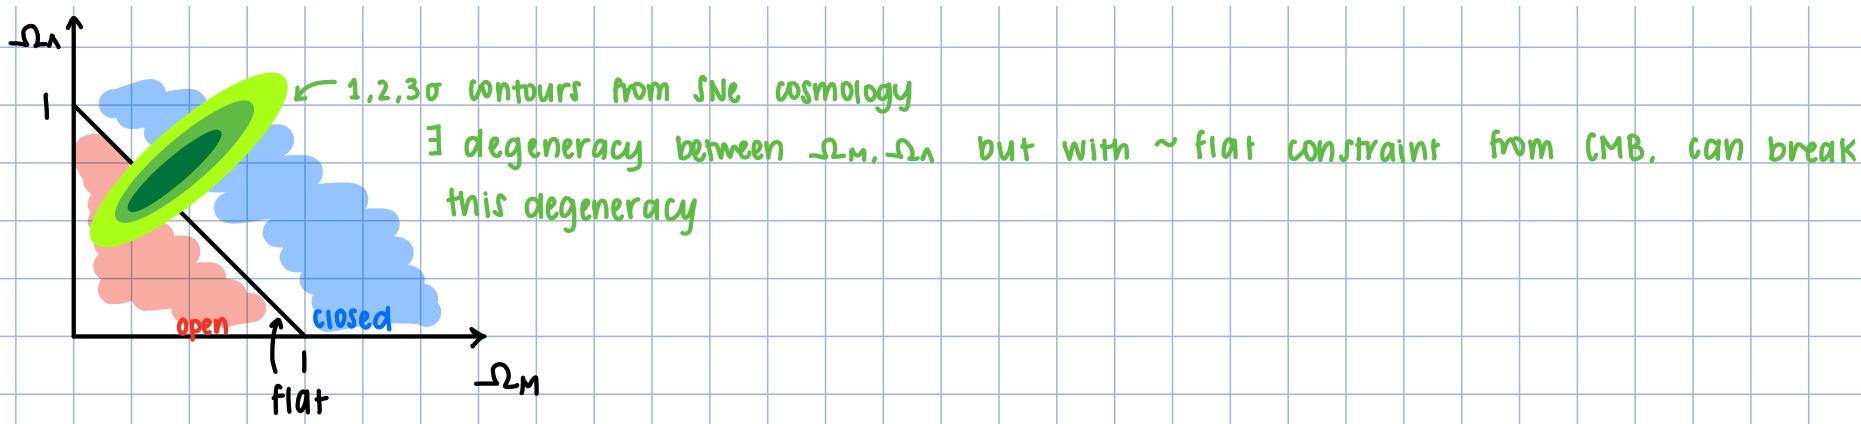 Ω_Λ
1
1,2,3σ contours from SNe cosmology
∃ degeneracy between Ω_M, Ω_Λ but with ~ flat constraint from CMB, can break
this degeneracy
open
closed
1
Ω_M
flat